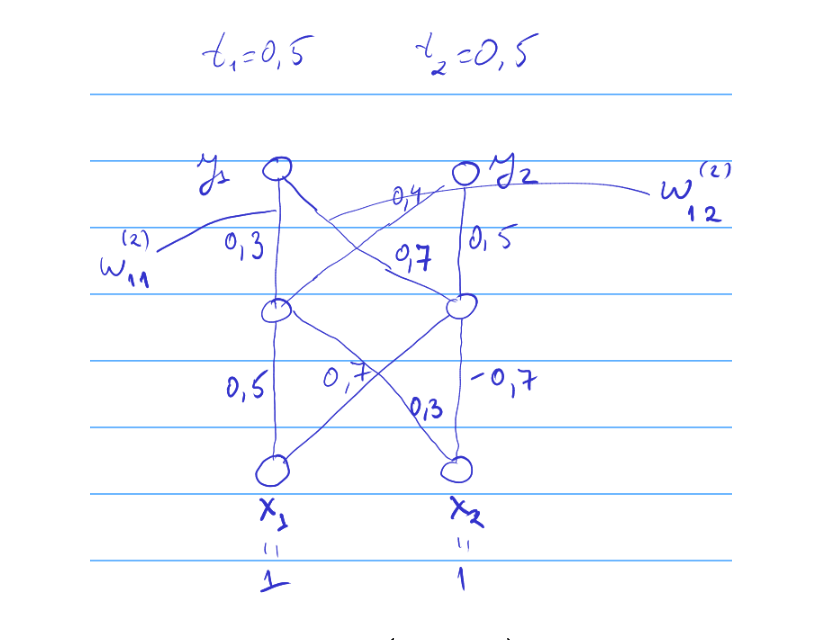 t₁=0,5 t₂=0,5
y₁ y₂
0,4 w₁₂⁽²⁾
w₁₁⁽²⁾ 0,3 0,7 0,5
0,5 0,7 -0,7
0,3
x₁ x₂
= =
1 1